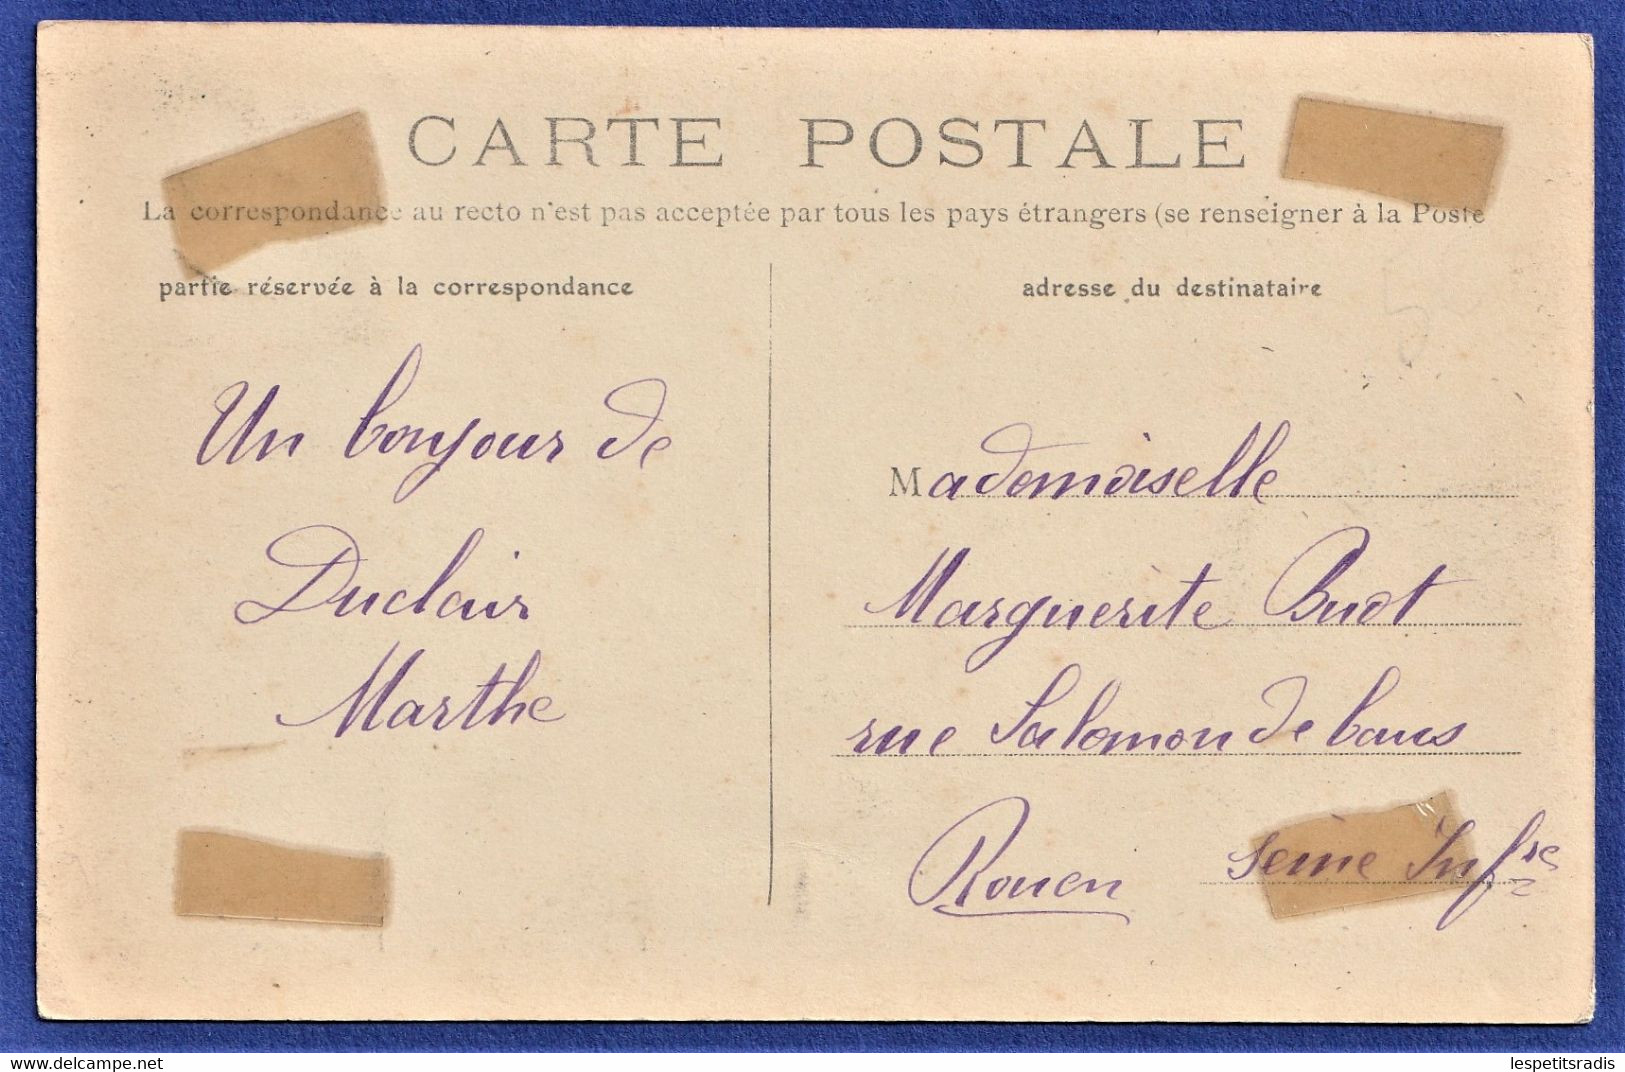 CARTE POSTALE
La correspondance au recto n'est pas acceptée par tous les pays étrangers (se renseigner à la Poste
partie réservée à la correspondance
adresse du destinataire
Un bonjour de
Duclair
Marthe
Mademoiselle
Marguerite Buot
rue Salomon de Caus
Rouen Seine Infre
lespetitsradis